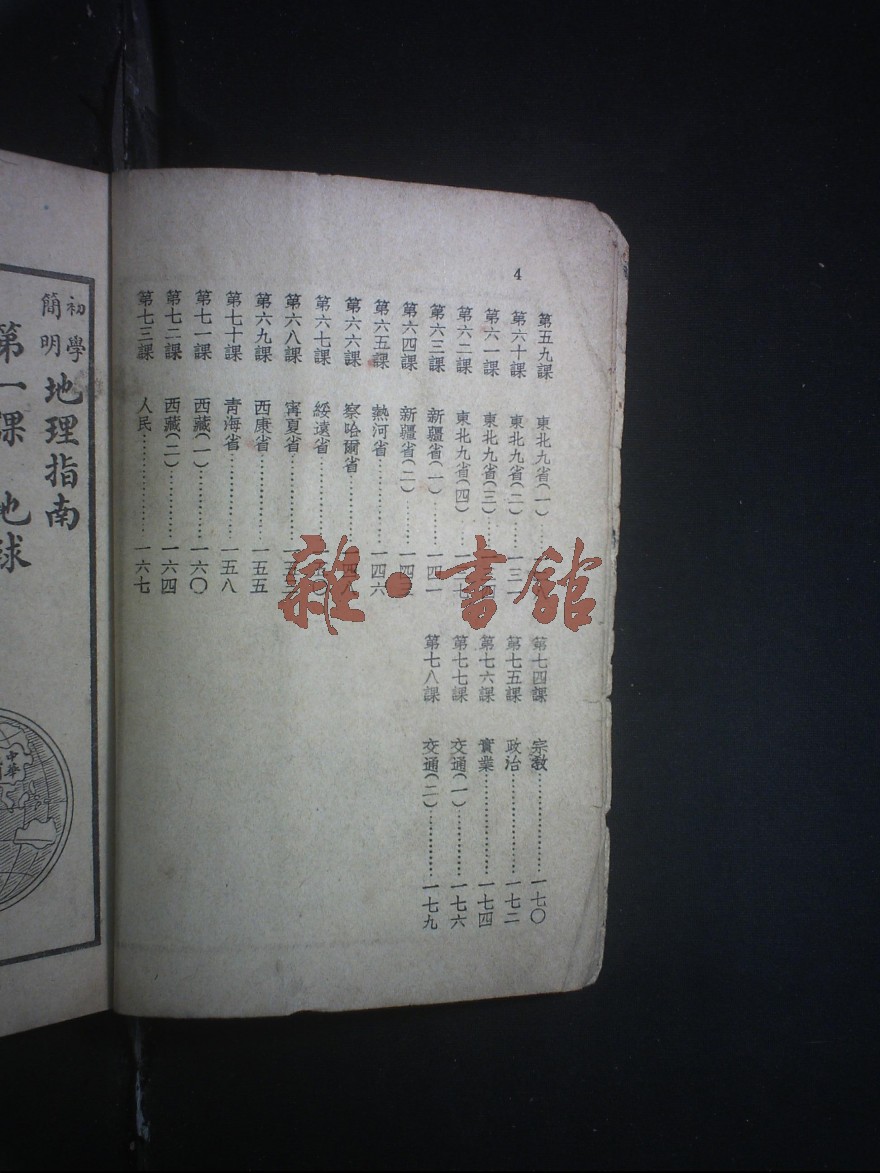 4
第五九課　東北九省(一)……
第六十課　東北九省(二)……一三一
第六一課　東北九省(三)……
第六二課　東北九省(四)……
第六三課　新疆省(一)……一四一
第六四課　新疆省(二)……
第六五課　熱河省……一四六
第六六課　察哈爾省……一四八
第六七課　綏遠省……
第六八課　寗夏省……
第六九課　西康省……一五五
第七十課　青海省……一五八
第七一課　西藏(一)……一六〇
第七二課　西藏(二)……一六四
第七三課　人民……一六七
第七四課　宗教……一七〇
第七五課　政治……一七二
第七六課　實業……一七四
第七七課　交通(一)……一七六
第七八課　交通(二)……一七九
初學
簡明
地理指南
第一課　地球
中華
雜·書館